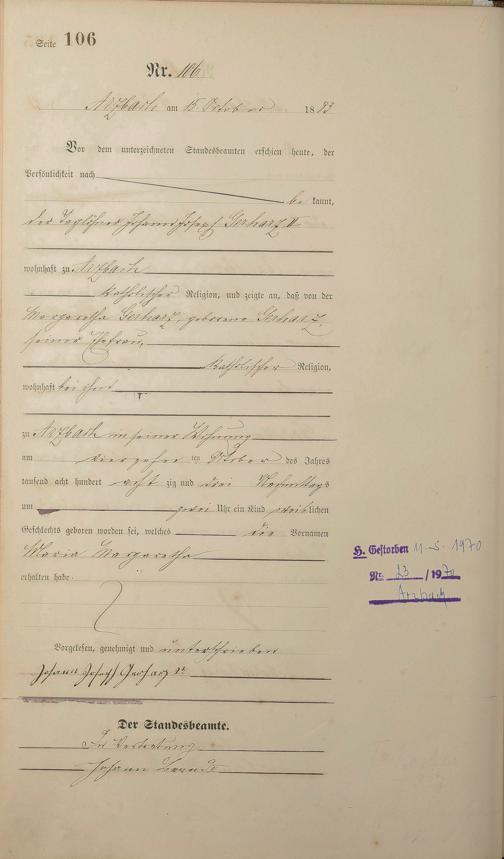 Seite 106
Nr. 106
Arzbach am 15. October 1883
Vor dem unterzeichneten Standesbeamten erschien heute, der
Persönlichkeit nach
be kannt,
der Taglöhner Johann Joseph Gerharz II
wohnhaft zu Arzbach
katholischer Religion, und zeigte an, daß von der
Margaretha Gerharz, geborene Gerharz,
seiner Ehefrau,
katholischer Religion,
wohnhaft bei ihm
zu Arzbach in seiner Wohnung
am vierzehn ten October des Jahres
tausend acht hundert acht zig und drei Nachmittags
um zwei Uhr ein Kind weiblichen
Geschlechts geboren worden sei, welches die Vornamen
Maria Margaretha
erhalten habe.
Vorgelesen, genehmigt und unterschrieben
Johann Joseph Gerharz
Der Standesbeamte.
In Vertretung
Johann
H. Gestorben 11-5-1970
Nr. 23 / 1970
Arzbach